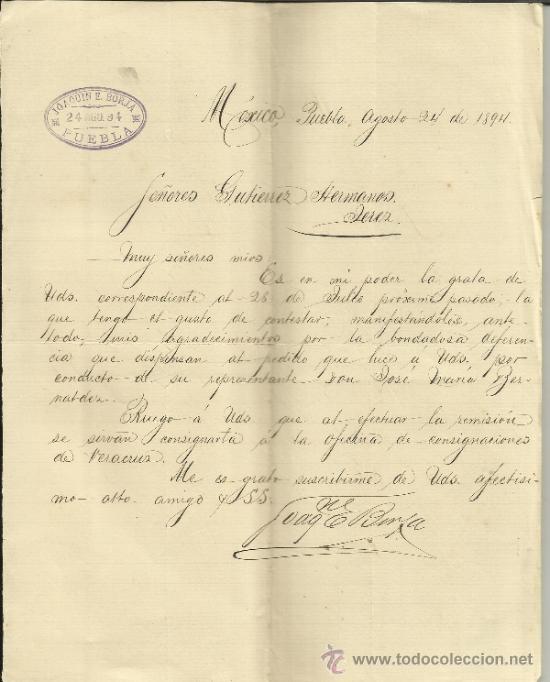 JOAQUIN E. BORJA
24 AGO. 94
PUEBLA
México, Puebla, Agosto 24 de 1894.
Señores Gutierrez Hermanos.
Jerez.
Muy señores mios
Es en mi poder la grata de
Uds. correspondiente al 26 de Julio próximo pasado, la
que tengo el gusto de contestar, manifestándoles, ante
todo, mis agradecimientos por la bondadosa diferen-
cia que dispensan al pedido que hice á Uds. por
conducto de su representante Don José María Ber-
naldez.
Ruego á Uds. que al efectuar la remisión
se sirvan consignarla á la oficina de consignaciones
de Veracruz.
Me es grato suscribirme de Uds. afectisi-
mo atto. amigo y SS.
Joaqn E Borja
todocoleccion
www.todocoleccion.net